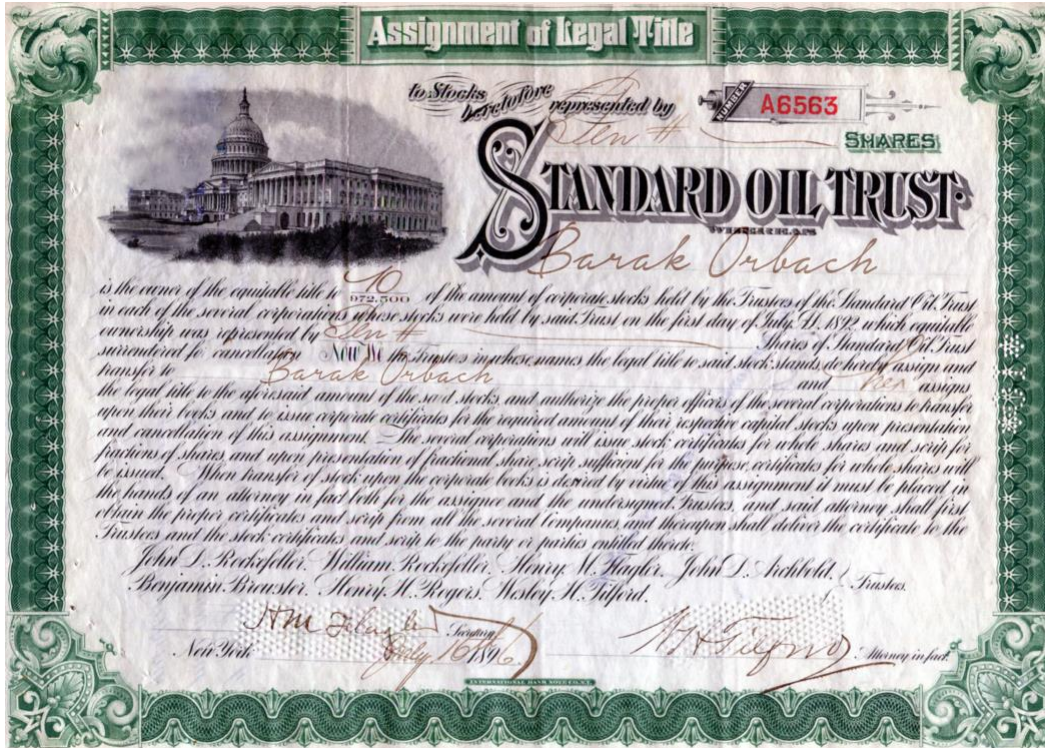 Assignment of Legal Title
to Stocks heretofore represented by
NUMBER A6563
Ten #
SHARES
STANDARD OIL TRUST.
WHEREAS
Barak Orbach
is the owner of the equitable title to 10/972.500 of the amount of corporate stocks held by the Trustees of the Standard Oil Trust
in each of the several corporations whose stocks were held by said Trust on the first day of July A.D. 1892 which equitable
ownership was represented by Ten # Shares of Standard Oil Trust
surrendered for cancellation NOW WE the Trustees in whose names the legal title to said stock stands, do hereby assign and
transfer to Barak Orbach and her assigns
the legal title to the aforesaid amount of the said stocks, and authorize the proper officers of the several corporations to transfer
upon their books and to issue corporate certificates for the required amount of their respective capital stocks upon presentation
and cancellation of this assignment. The several corporations will issue stock certificates for whole shares and scrip for
fractions of shares and upon presentation of fractional share scrip sufficient for the purpose, certificates for whole shares will
be issued. When transfer of stock upon the corporate books is desired by virtue of this assignment it must be placed in
the hands of an attorney in fact both for the assignee and the undersigned Trustees, and said attorney shall first
obtain the proper certificates and scrip from all the several Companies and thereupon shall deliver the certificate to the
Trustees and the stock certificates and scrip to the party or parties entitled thereto.
John D. Rockefeller, William Rockefeller, Henry M. Flagler, John D. Archbold,
Benjamin Brewster, Henry H. Rogers, Wesley H. Tilford. Trustees.
Secretary
W H Tilford Attorney in fact.
New York July 16 1896
INTERNATIONAL BANK NOTE CO. N.Y.